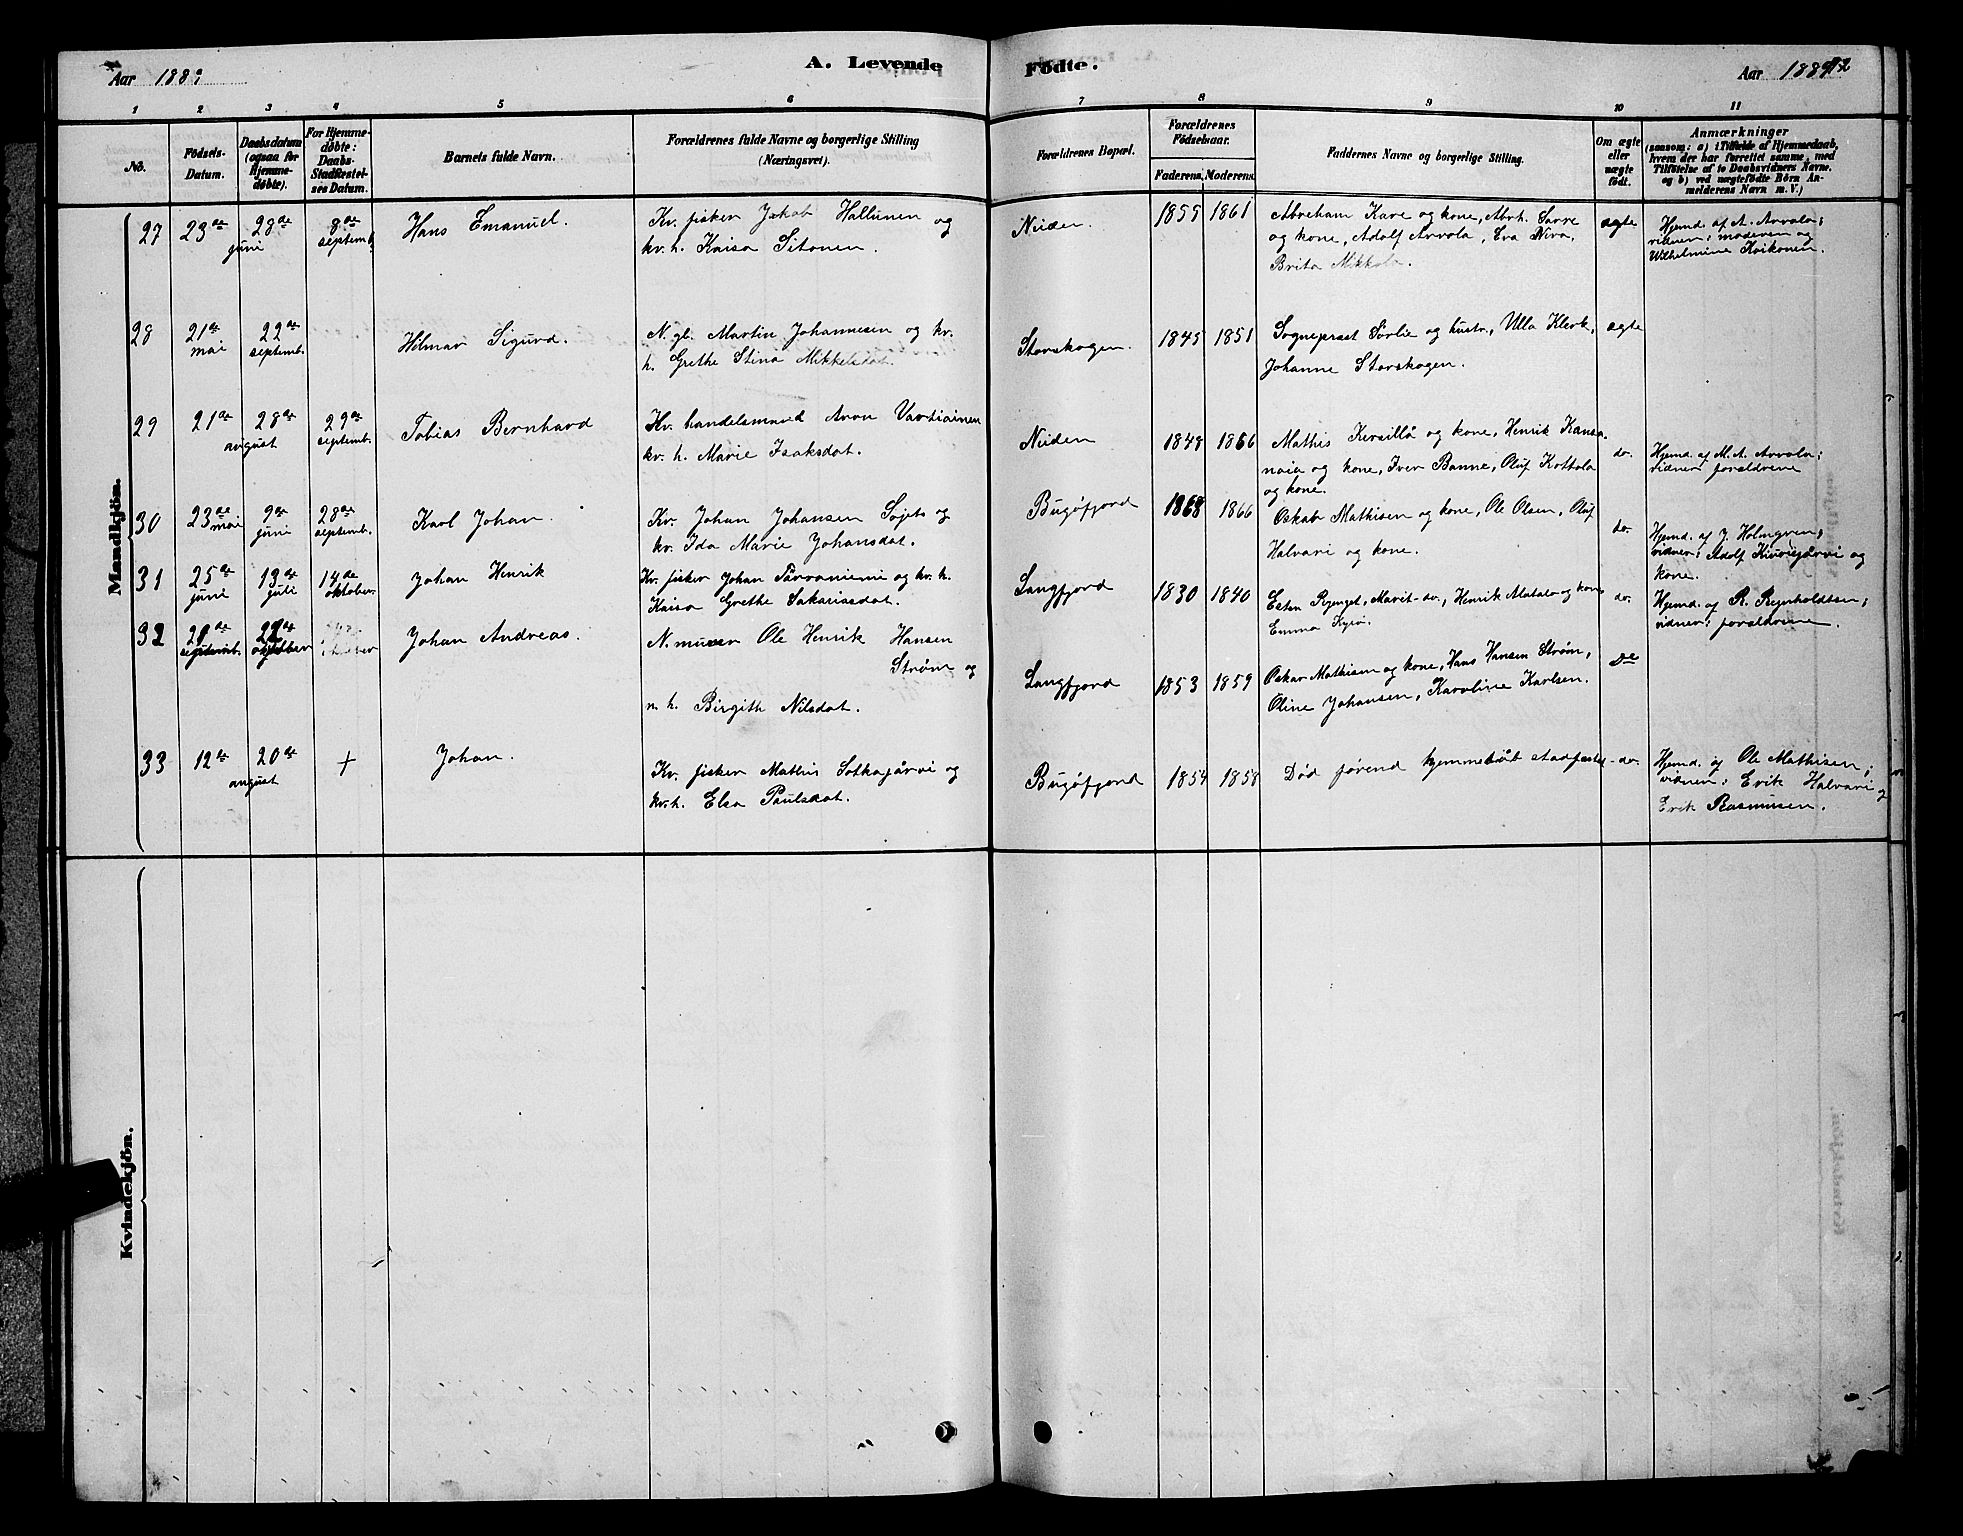 Aar 1889
A. Levende
Fødte.
Aar 1889
12
1 2 3 4 5 6 7 8 9 10 11
No.
Fødsels-
Datum.
Daabsdatum
(ogsaa for
Hjemme-
døbte).
For Hjemme-
døbte:
Daabs-
Stadfæstel-
ses Datum.
Barnets fulde Navn.
Forældrenes fulde Navne og borgerlige Stilling
(Næringsvei).
Forældrenes Bopæl.
Forældrenes
Fødselsaar.
Faderens. Moderens.
Faddernes Navne og borgerlige Stilling.
Om ægte
eller
uægte
født.
Anmærkninger
(saasom: a) i Tilfælde af Hjemmedaab,
hvem der har forrettet samme, med
Tilføielse af to Daabsvidners Navne.
og b) ved uægtefødte Børn An-
melderens Navn m. V.)
Mandkjön.
27 23de 28de juni 8de septemb. Hans Emanuel.
Kv. fisker Jakob Hallunen og
kv. h. Kaisa Sitonen.
Neiden 1859 1861
Abraham Kare og kone, Abrh. Sarre
og kone, Adolf Arvola, Eva Niva,
Brita Mikkola.
ægte
Hjemd. af A. Arvola;
vidner: moderen og
Wilhelmine Koikonen.
28 21de mai 22de septemb. Hilmar Sigurd.
N. gb. Martin Johannesen og kv.
h. Grethe Stina Mikkelsdat.
Storskogen. 1845 1851
Sogneprest Sørlie og hustr., Ulla Klerk,
Johanne Storskogen.
ægte
29 21de 28de august 29de septemb. Tobias Bernhard
Kv. handelsmand Aron Vartiainen
kv. h. Marie Isaksdat.
Neiden 1848 1866
Mathis Kersillä og kone, Henrik Kansa-
naia og kone, Iver Banne, Oluf Kottola
og kone.
do.
Hjemd. af M. A. Arvola;
vidner forældrene
30 23de mai 9de juni 28de septemb. Karl Johan.
Kv. Johan Johansen Sojets og
kv. Ida Marie Johansdat.
Bugøfjord 1868 1866
Oskar Mathisen og kone, Ole Olsen, Oluf
Halvari og kone.
do.
Hjemd. af J. Holmgren;
vidner: Adolf Kiviejärvi og
kone.
31 25de juni 13de juli 14de oktober. Johan Henrik
Kv. fisker Johan Törvaniemi og kv. h.
Kaisa Grethe Sakariasdat.
Langfjord 1830 1840
Esten Ryenget, Marit do., Henrik Matala og kone
Emma
do.
Hjemd. af R. Reinholdtsen;
vidner: forældrene.
32 21de septemb. 22de oktober Johan Andreas.
N. murer Ole Henrik Hansen
Strøm og
n. h. Birgith Nilsdat.
Langfjord 1853 1859
Oskar Mathisen og kone, Hans Hansen Strøm,
Oline Johansen, Karoline Karlsen.
do
33 12de 20de august + Johan.
Kv. fisker Mathis Sotkajärvi og
kv. h. Elsa Paulsdat.
Bugøfjord 1854 1858
Død førend hjemmedåb stadfæstet
do.
Hjemd. af Ole Mathisen;
vidner: Erik Halvari og
Erik Rasmusen.
Kvindekjön.